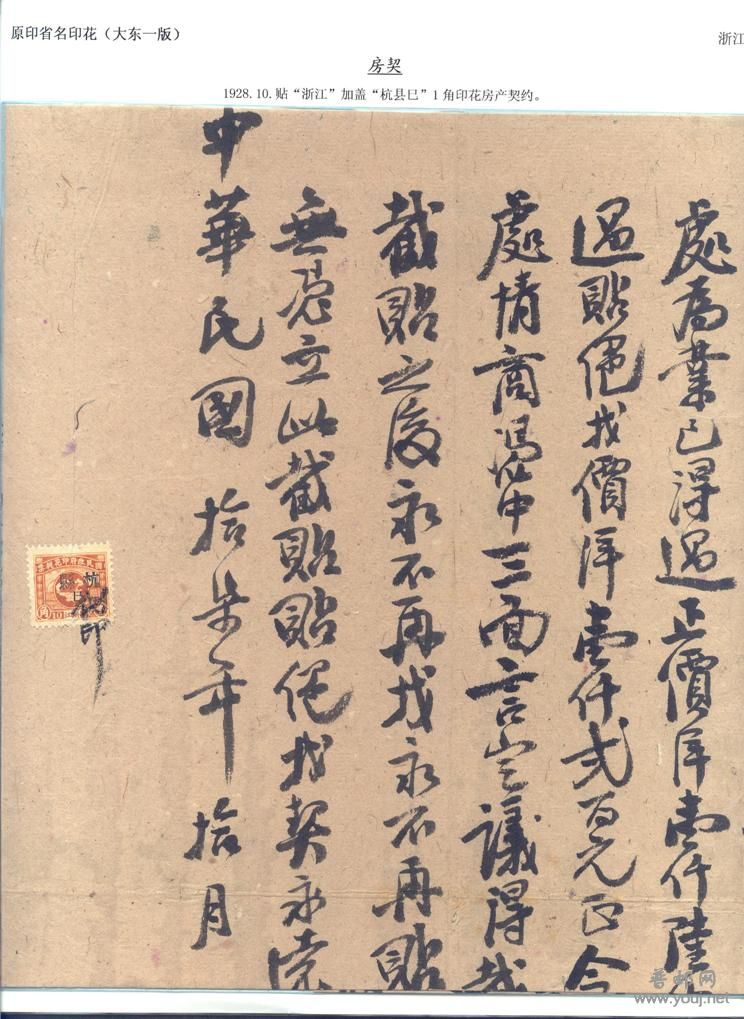 原印省名印花（大东一版）
浙江
房契
1928.10.贴“浙江”加盖“杭县巳”1角印花房产契约。
處為業已得過正價洋壹仟陸
過貼絕找價洋壹仟弍百元正今
處情商馮中三面言定議得截
截貼之後永不再找永不再貼
無憑立此截貼貼絕找契永遠
中華民國拾柒年拾月
國民政府印花稅票
杭縣巳
角
10
印
普邮网
www.youj.net